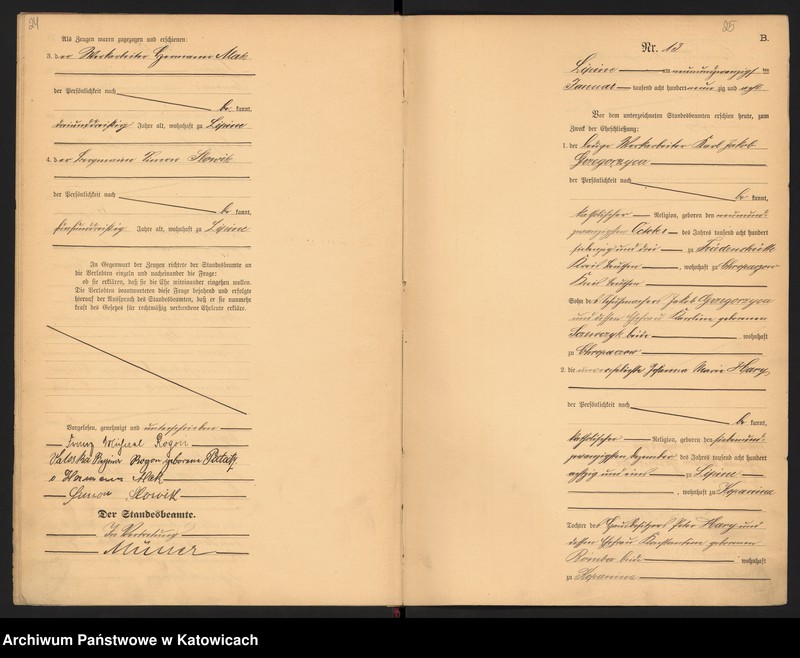 24
Als Zeugen waren zugezogen und erschienen:
3. der Werkarbeiter Hermann Mak
der Persönlichkeit nach
be kannt,
dreiunddreißig Jahre alt, wohnhaft zu Lipine
4. der Bergmann Simon Slowik
der Persönlichkeit nach
be kannt,
fünfunddreißig Jahre alt, wohnhaft zu Lipine
In Gegenwart der Zeugen richtete der Standesbeamte an
die Verlobten einzeln und nacheinander die Frage:
ob sie erklären, daß sie die Ehe miteinander eingehen wollen.
Die Verlobten beantworteten diese Frage bejahend und erfolgte
hierauf der Ausspruch des Standesbeamten, daß er sie nunmehr
kraft des Gesetzes für rechtmäßig verbundene Eheleute erkläre.
Vorgelesen, genehmigt und unterschrieben
Franz Michael Rogon
Valeska Rogon geborene
Hermann Mak
Simon Slowik
Der Standesbeamte.
In Vertretung
Müller
25
B.
Nr. 13
Lipine am neunundzwanzigsten
Januar tausend acht hundert neun zig und acht
Vor dem unterzeichneten Standesbeamten erschien heute, zum
Zweck der Eheschließung:
1. der ledige Werkarbeiter Karl Jakob
Grzegorzyca
der Persönlichkeit nach
be kannt,
katholischer Religion, geboren den neunund-
zwanzigsten October des Jahres tausend acht hundert
siebenzig und drei zu Friedenshütte
Kreis Beuthen, wohnhaft zu Chropaczow
Kreis Beuthen
Sohn des Jakob Grzegorzyca
und dessen Ehefrau Karoline geborenen
beide wohnhaft
zu Chropaczow
2. die unverehelichte Johanna Marie Hary
der Persönlichkeit nach
be kannt,
katholischer Religion, geboren den siebenund-
zwanzigsten Dezember des Jahres tausend acht hundert
achtzig und eins zu Lipine
, wohnhaft zu Kopanina
Tochter des Hausbesitzers Peter Hary und
dessen Ehefrau Konstantine geborenen
beide wohnhaft
zu Kopanina
Archiwum Państwowe w Katowicach